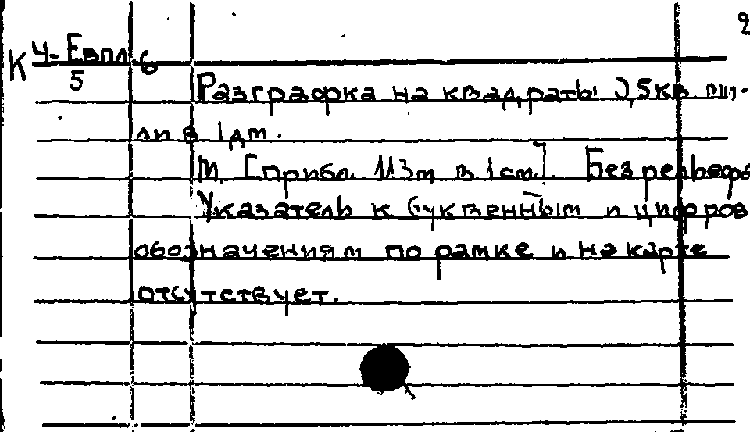 2
К У-Евпл.6
5
Разграфка на квадраты 2,5 кв. ми-
ли в 1 дм.
М. [прибл. 113 м в 1 см]. Без рельефа
Указатель к буквенным и цифров
обозначениям по рамке и на карте
отсутствует.